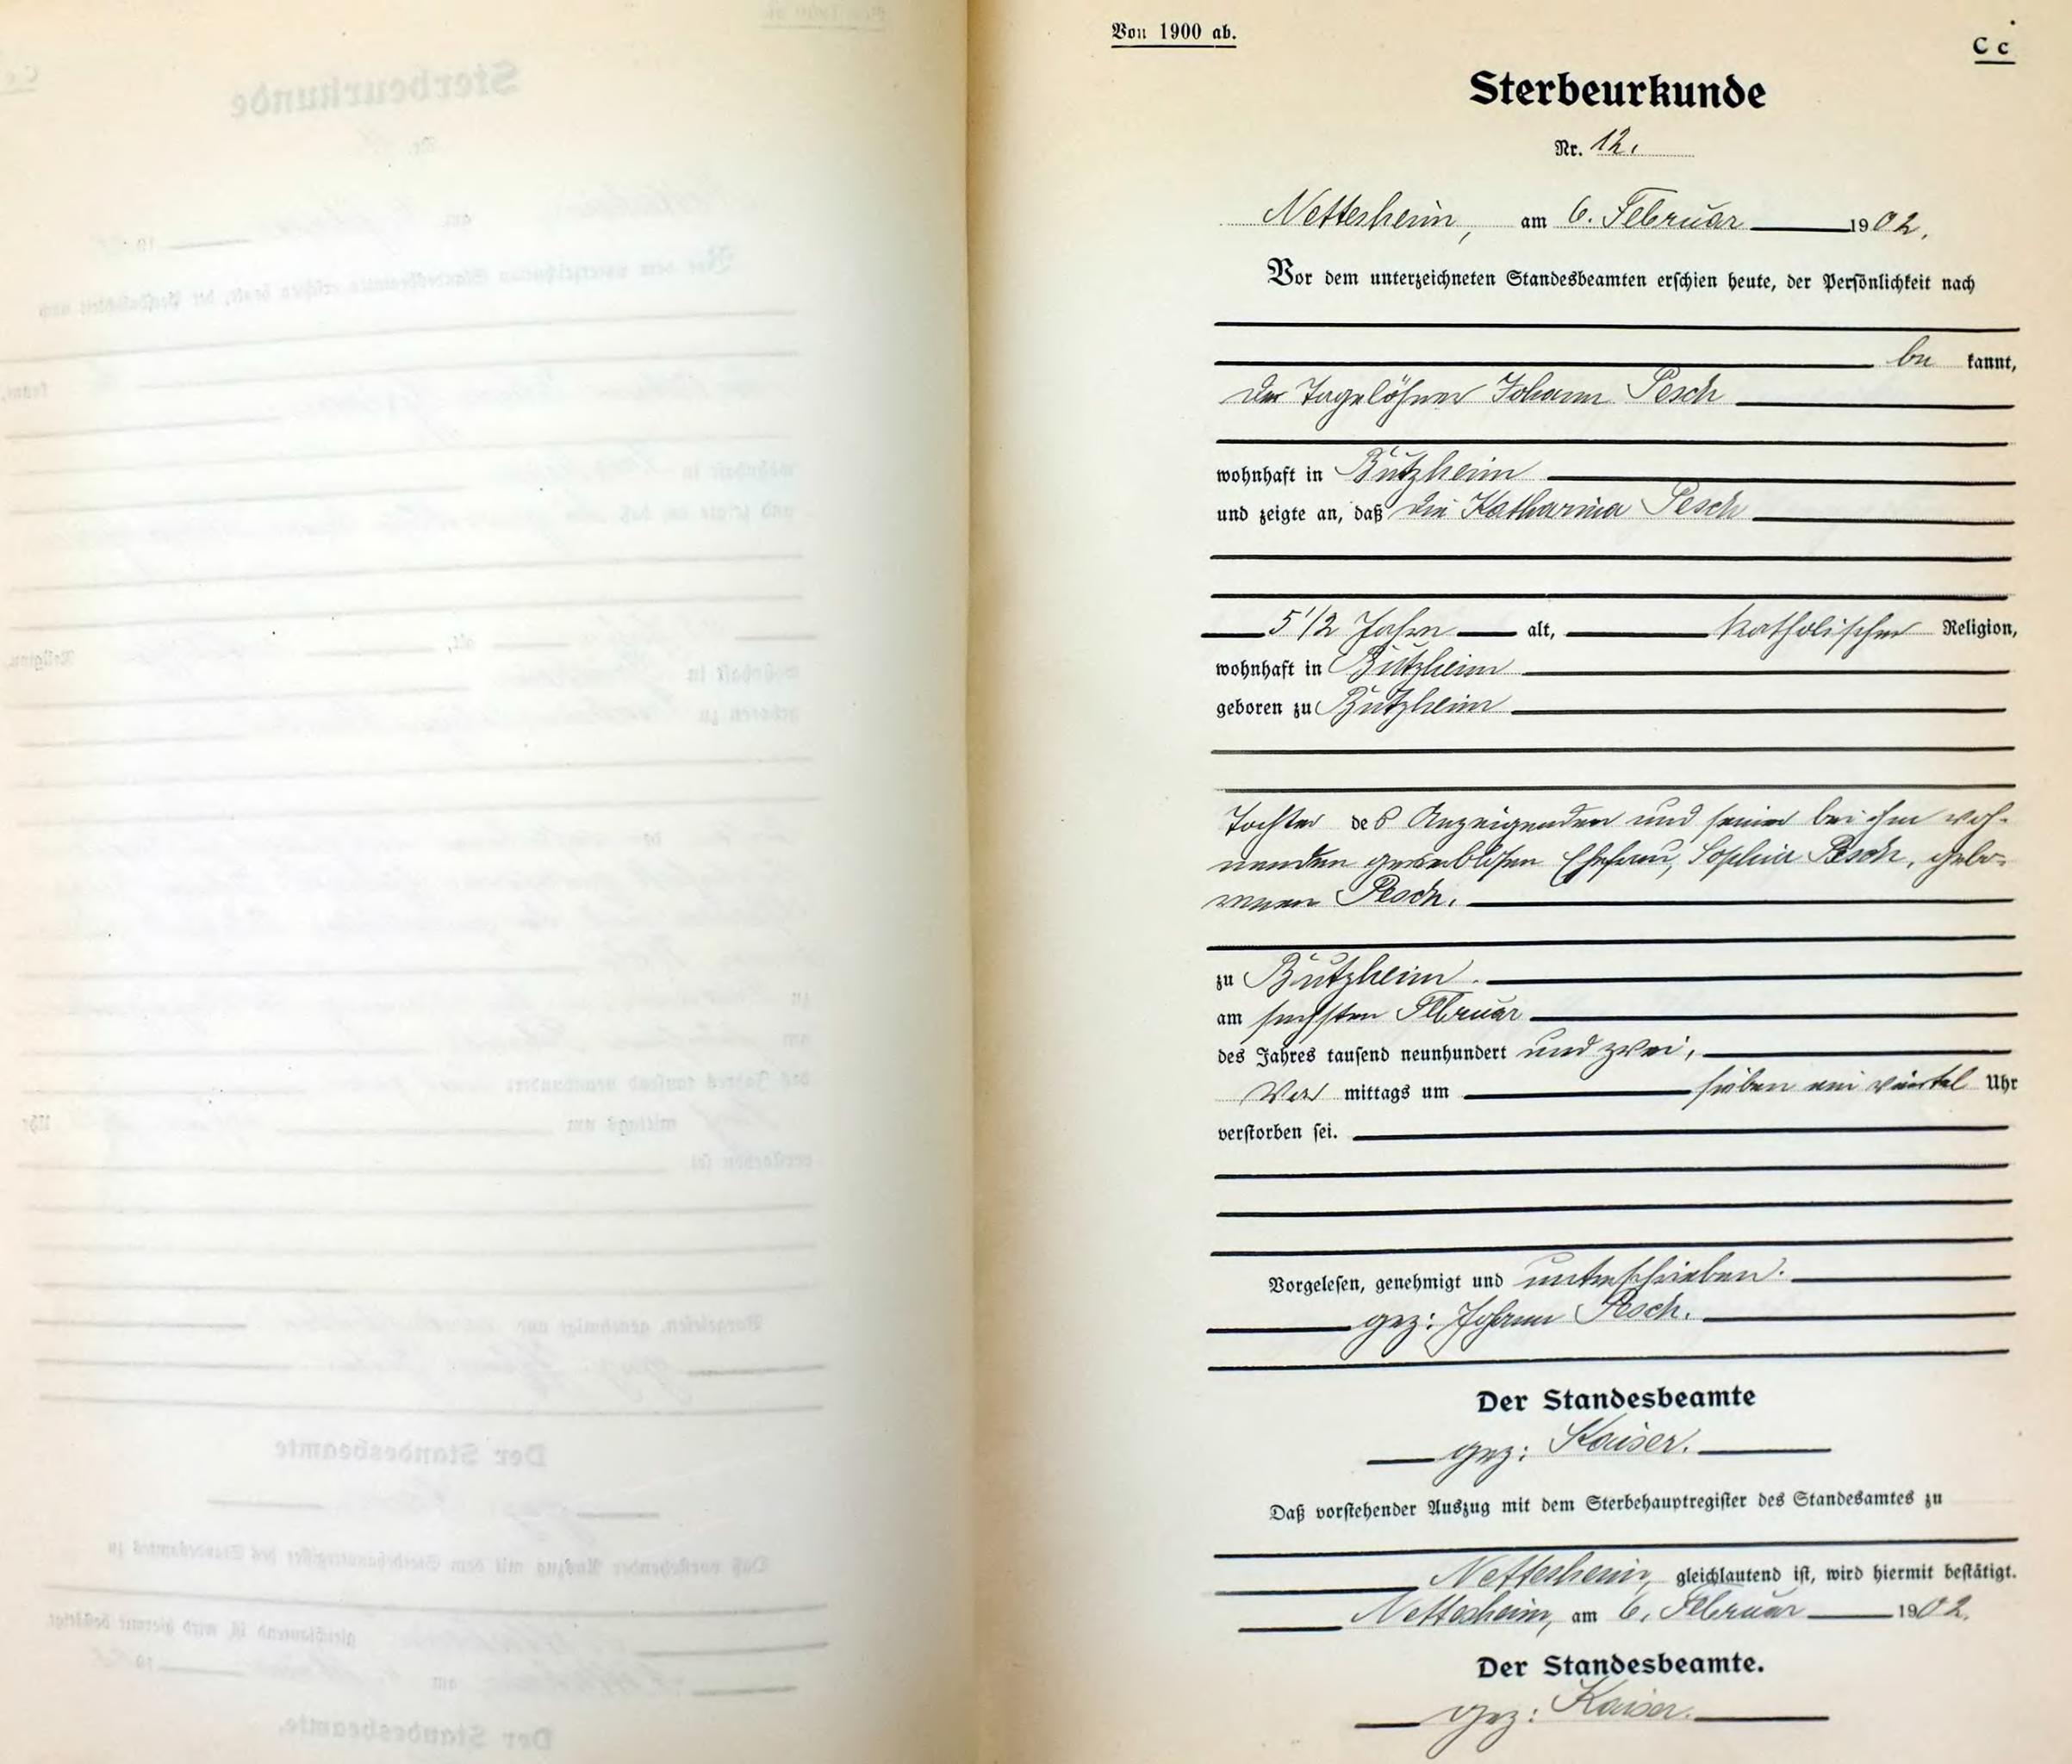 Von 1900 ab.
C c
Sterbeurkunde
Nr. 12.
Nettesheim, am 6. Februar 1902.
Vor dem unterzeichneten Standesbeamten erschien heute, der Persönlichkeit nach
be kannt,
der Tagelöhner Johann Pesch
wohnhaft in Butzheim
und zeigte an, daß die Katharina Pesch
5 1/2 Jahre alt, katholischer Religion,
wohnhaft in Butzheim
geboren zu Butzheim
Tochter des Anzeigenden und seiner bei ihm woh-
nenden gewerblosen Ehefrau, Sophia Pesch, gebo-
renen Pesch.
zu Butzheim
am sechsten Februar
des Jahres tausend neunhundert und zwei,
Vor mittags um sieben ein viertel Uhr
verstorben sei.
Vorgelesen, genehmigt und unterschrieben.
gez: Johann Pesch.
Der Standesbeamte
gez: Kaiser.
Daß vorstehender Auszug mit dem Sterbehauptregister des Standesamtes zu
Nettesheim, gleichlautend ist, wird hiermit bestätigt.
Nettesheim, am 6. Februar 1902.
Der Standesbeamte.
gez: Kaiser.